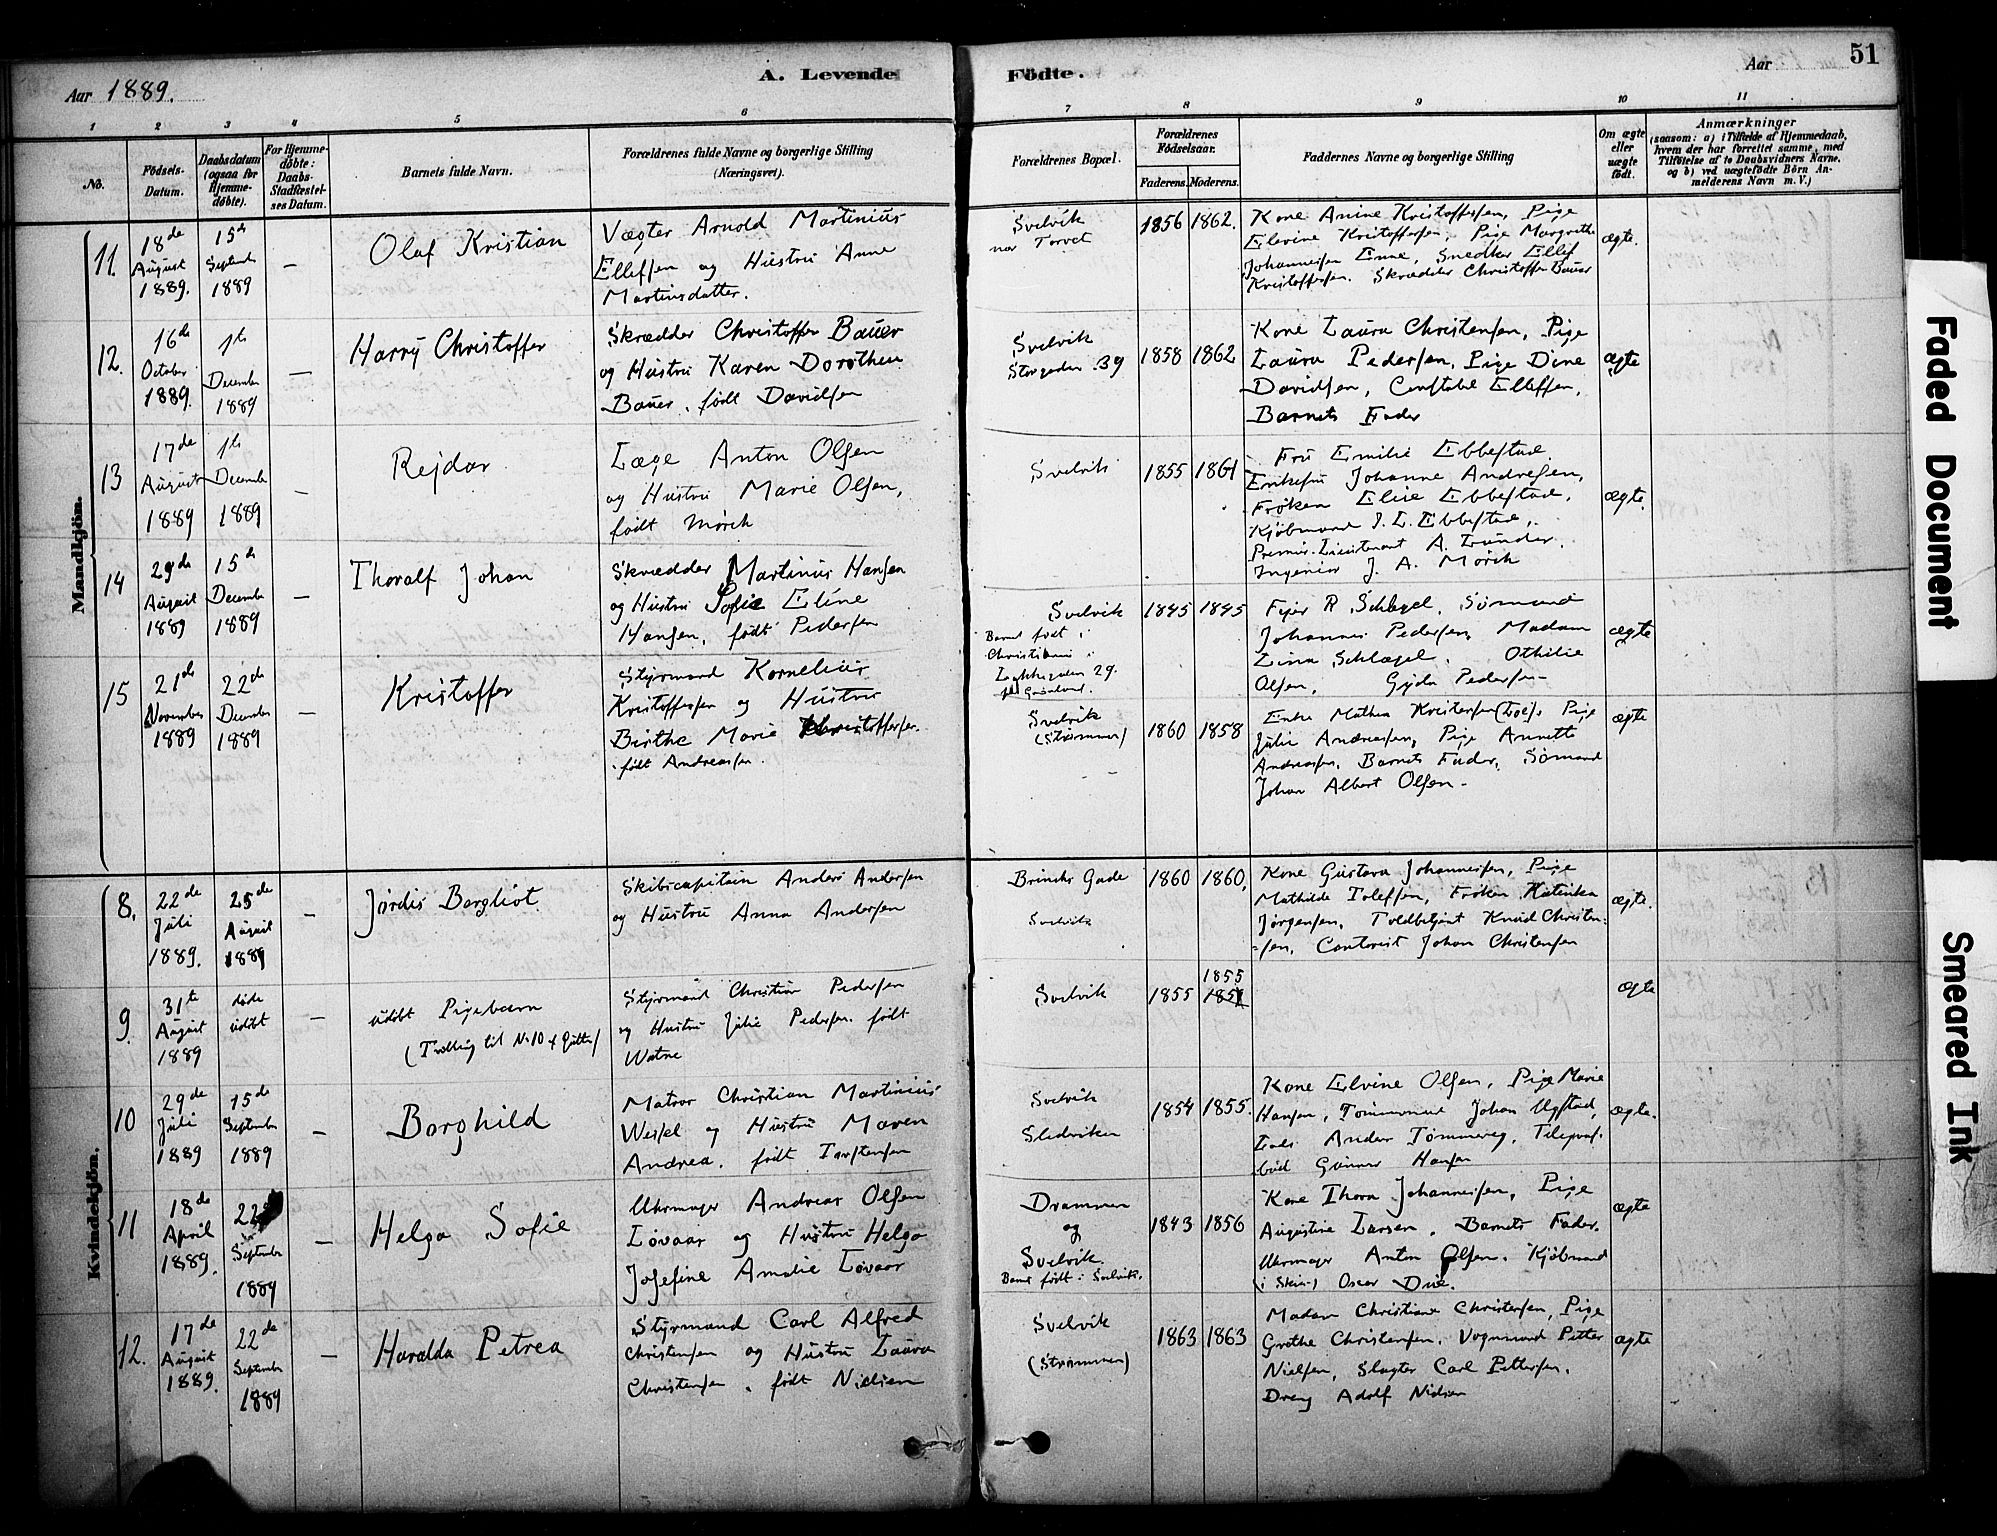 Aar 1889.
A. Levende
Födte.
Aar
51
1
2
3
4
5
6
7
8
9
10
11
No.
Födsels-
Datum.
Daabsdatum
(ogsaa for
Hjemme-
döbte).
For Hjemme-
döbte:
Daabs-
Stadfæstel-
ses Datum.
Barnets fulde Navn.
Forældrenes fulde Navne og borgerlige Stilling
(Næringsvei).
Forældrenes Bopæl.
Forældrenes
Födselsaar.
Faderens.
Moderens.
Faddernes Navne og borgerlige Stilling
Om ægte
eller
uægte
födt.
Anmærkninger
(saasom: a) i Tilfælde af Hjemmedaab,
hvem der har forrettet samme, med
Tilföielse af to Daabsvidners Navne.
og b) ved uægtefödte Börn An-
melderens Navn m. V.)
Mandkjön.
11.
18de
August
1889.
15de
September
1889
—
Olaf Kristian
Vægter Arnold Martinius
Ellefsen og Hustru Anne
Martinsdatter.
Svelvik
nær Torvet
1856
1862.
Kone Anine Kristoffersen, Pige
Elevine Kristoffersen, Pige Margrethe
Johannesen Enne, Snedker Ellef
Kristoffersen. Skrædder Christoffer Bauer
ægte.
12.
16de
October
1889.
1ste
December
1889
—
Harry Christoffer
Skrædder Christoffer Bauer
og Hustru Karen Dorothea
Bauer, født Davidsen
Svelvik
Storgaden 39
1858
1862
Kone Laura Christensen, Pige
Laura Pedersen, Pige Dine
Davidsen, Constabel Ellefsen,
Barnets Fader
ægte
13
17de
August
1889
1ste
December
1889
—
Rejdar
Læge Anton Olsen
og Hustru Marie Olsen,
født Mørch
Svelvik
1855
1861
Fru Emilie Ebbestad.
Enkefru Johanne Andresen,
Frøken Elise Ebbestad,
Kjøbmand J. L. Ebbestad,
Premier-Lieutenant A. Lunder,
Ingeniør J. A. Mørch
ægte.
14
29de
August
1889
15de
December
1889
—
Thoralf Johan
Skrædder Martinus Hansen
og Hustru Sofie Eline
Hansen, født Pedersen
Svelvik
Barnet født i
Christiania
29.
1845
1845
R Schlagel, Sømand
Johannes Pedersen, Madam
Lina Schlagel. Othilie
Olsen, Gyda Pedersen
ægte
15
21de
November
1889
22de
December
1889
—
Kristoffer
Styrmand Kornelius
Kristoffersen og Hustru
Birthe Marie Christoffersen.
født Andreassen.
Svelvik
(Strømmen)
1860
1858
Enke Mathea Kristensen Pige
Julie Andreassen, Pige Annett
Andreassen, Barnets Fader, Sømand
Johan Albert Olsen.
ægte
Kvindekjön.
8.
22de
Juli
1889.
25de
August
1889
—
Jørdis Bergliot.
Skibscapitain Anders Andersen
og Hustru Anna Andersen
Brinchs Gade
Svelvik
1860
1860,
Kone Gustava Johannesen, Pige
Mathilde Tolefsen, Frøken Katinka
Jørgensen, Toldbetjent Knud Christen-
-sen, Contorist Johan Christensen
ægte.
9.
31te
August
1889
døde
udøbt
—
udøbt Pigebarn
(Tvilling til No 10 af Gutter)
Styrmand Christian Pedersen
og Hustru Julie Pedersen. født
Watne
Svelvik
1855
1855
ægte
10
29de
Juli
1889
15de
September
1889
—
Borghild
Matros Christian Martinius
Wessel og Hustru Maren
Andrea, født Torstensen
Svelvik
Sledviken
1854
1855.
Kone Elvine Olsen, Pige Marie
Hansen, Tømmermand Johan Ugstad,
Lods Anders Tømmereg, Telegraf-
bud Gunner Hansen
ægte.
11
18de
April
1889.
22de
September
1889
—
Helga Sofie
Uhrmager Andreas Olsen
Løvaas og Hustru Helga
Josefine Amalie Løvaas
Drammen
og
Svelvik.
Barnet født i Svelvik.
1843
1856
Kone Thora Johannesen, Pige
Augustine Larsen, Barnets Fader.
Uhrmager Anton Olsen. Kjøbmand
(i Skien) Oscar Due.
ægte
12.
17de
August
1889.
22de
September
1889
—
Haralda Petrea
Styrmand Carl Alfred
Christensen og Hustru Laura
Christensen, født Nielsen
Svelvik
(Strømmen)
1863
1863
Madam Christiane Christensen, Pige
Grethe Christensen. Vognmand Petter
Nielsen, Slagter Carl Pettersen.
Dreng Adolf Nielsen
ægte
Faded Document
Smeared Ink